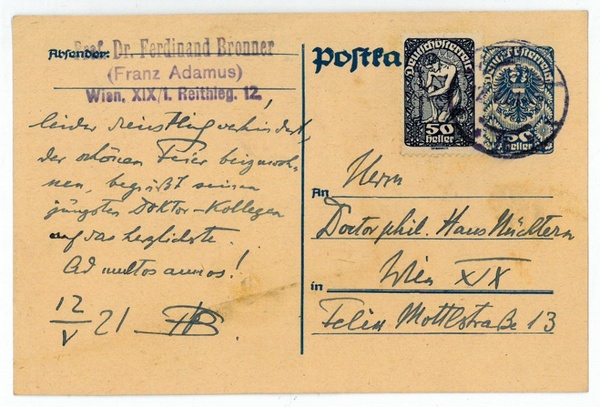 Absender:
Prof. Dr. Ferdinand Bronner
(Franz Adamus)
Wien, XIX/1. Reithleg. 12.
leider dienstlich verhindert,
der schönen Feier beizuwoh-
nen, begrüßt seinen
jüngsten Doktor-Kollegen
auf das herzlichste.
Ad multos annos!
12/V 21 FB
Postka
Deutschösterreich
50
Heller
Deutschösterreich
Heller
An
Herrn
Doctor phil. Hans Nüchtern
Wien XIX
in
Felix Mottlstraße 13